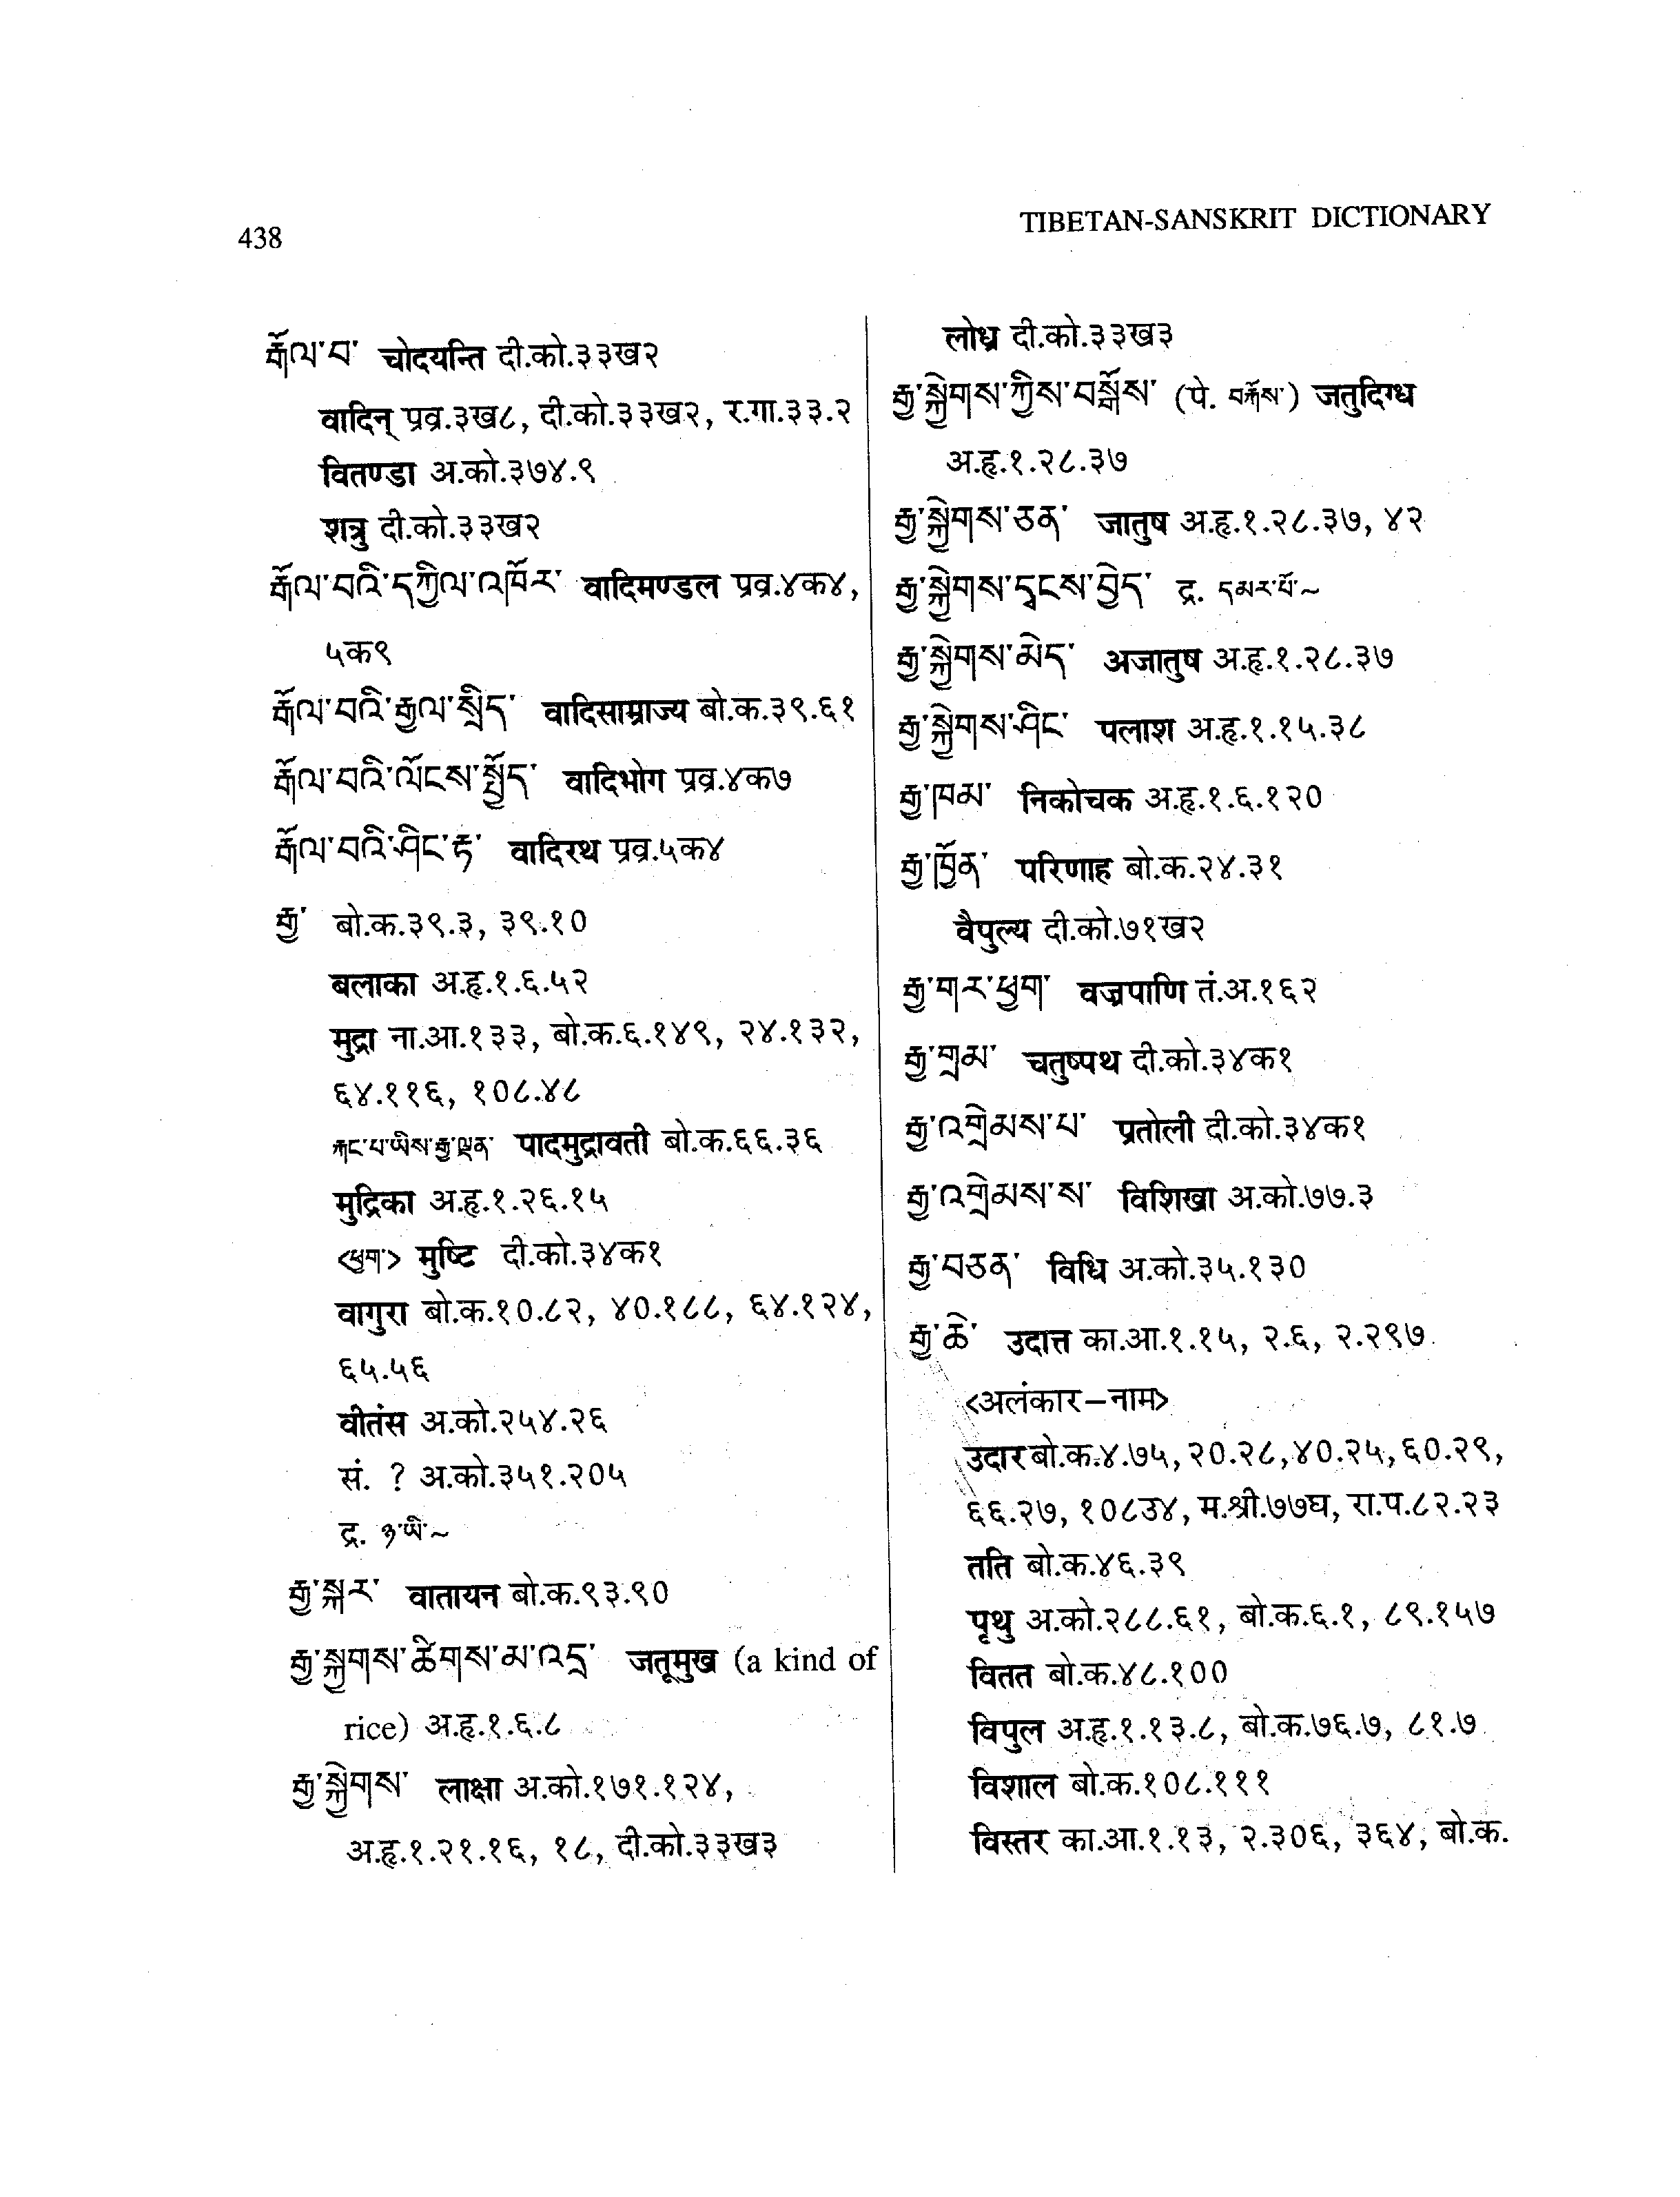 438
TIBETAN-SANSKRIT DICTIONARY
རྒོལ་བ་ चोदयन्ति दी.को.३३ख२
वादिन् प्रव्र.३ख८, दी.को.३३ख२, र.गा.३३.२
वितण्डा अ.को.३७४.९
शत्रु दी.को.३३ख२
རྒོལ་བའི་དཀྱིལ་འཁོར་ वादिमण्डल प्रव्र.४क४,
५क९
རྒོལ་བའི་རྒྱལ་སྲིད་ वादिसाम्राज्य बो.क.३९.६१
རྒོལ་བའི་ལོངས་སྤྱོད་ वादिभोग प्रव्र.४क७
རྒོལ་བའི་ཤིང་རྟ་ वादिरथ प्रव्र.५क४
རྒྱ་ बो.क.३९.३, ३९.१०
बलाका अ.हृ.१.६.५२
मुद्रा ना.आ.१३३, बो.क.६.१४९, २४.१३२,
६४.११६, १०८.४८
རྐང་པ་ཡིས་རྒྱ་ལྡན་ पादमुद्रावती बो.क.६६.३६
मुद्रिका अ.हृ.१.२६.१५
<ཕྱག་> मुष्टि दी.को.३४क१
वागुरा बो.क.१०.८२, ४०.१८८, ६४.१२४,
६५.५६
वीतंस अ.को.२५४.२६
सं. ? अ.को.३५१.२०५
द्र. ཉ་ཡི་~
རྒྱ་སྐར་ वातायन बो.क.९३.९०
རྒྱ་སྐྱགས་ཚིགས་མ་འདྲ་ जतूमुख (a kind of
rice) अ.हृ.१.६.८
རྒྱ་སྐྱེགས་ लाक्षा अ.को.१७१.१२४,
अ.हृ.१.२१.१६, १८, दी.को.३३ख३
लोध्र दी.को.३३ख३
རྒྱ་སྐྱེགས་ཀྱིས་བསྒོས་ (पे. བརྐོས་) जतुदिग्ध
अ.हृ.१.२८.३७
རྒྱ་སྐྱེགས་ཅན་ जातुष अ.हृ.१.२८.३७, ४२
རྒྱ་སྐྱེགས་དྭངས་བྱེད་ द्र. དམར་པོ་~
རྒྱ་སྐྱེགས་མེད་ अजातुष अ.हृ.१.२८.३७
རྒྱ་སྐྱེགས་ཤིང་ पलाश अ.हृ.१.१५.३८
རྒྱ་ཁམ་ निकोचक अ.हृ.१.६.१२०
རྒྱ་ཁྱོན་ परिणाह बो.क.२४.३१
वैपुल्य दी.को.७१ख२
རྒྱ་གར་ཕྱག་ वज्रपाणि तं.अ.१६२
རྒྱ་གྲམ་ चतुष्पथ दी.को.३४क१
རྒྱ་འགྲེམས་པ་ प्रतोली दी.को.३४क१
རྒྱ་འགྲེམས་ས་ विशिखा अ.को.७७.३
རྒྱ་བཅན་ विधि अ.को.३५.१३०
རྒྱ་ཆེ་ उदात्त का.आ.१.१५, २.६, २.२९७
<अलंकार–नाम>
उदार बो.क.४.७५, २०.२८, ४०.२५, ६०.२९,
६६.२७, १०८उ४, म.श्री.७७घ, रा.प.८२.२३
तति बो.क.४६.३९
पृथु अ.को.२८८.६१, बो.क.६.१, ८९.१५७
वितत बो.क.४८.१००
विपुल अ.हृ.१.१३.८, बो.क.७६.७, ८१.७
विशाल बो.क.१०८.१११
विस्तर का.आ.१.१३, २.३०६, ३६४, बो.क.